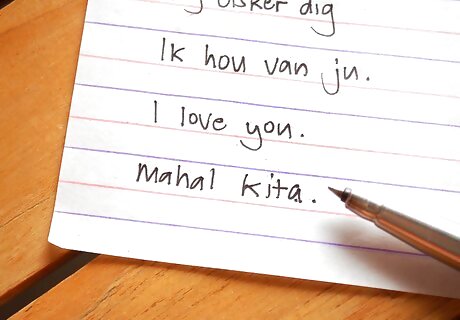 J elsker dig
Ik hou van ju.
I love you.
Mahal kita.